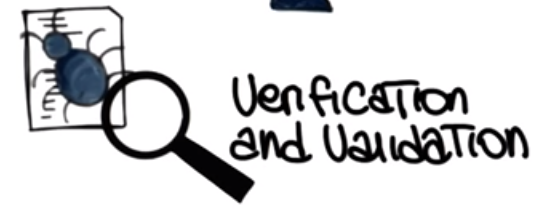 Verification
and Validation